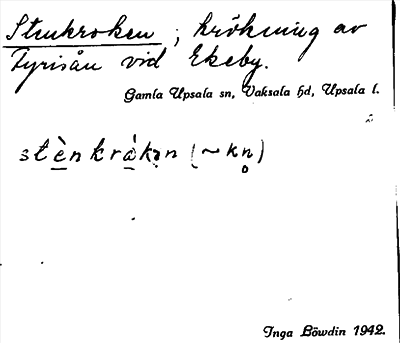 Stenkroken ; krökning av
Fyrisån vid Ekeby.
Gamla Upsala sn, Vaksala hd, Upsala l.
stè̱nkrà̱kən (~kn̥)
Inga Böwdin 1942.